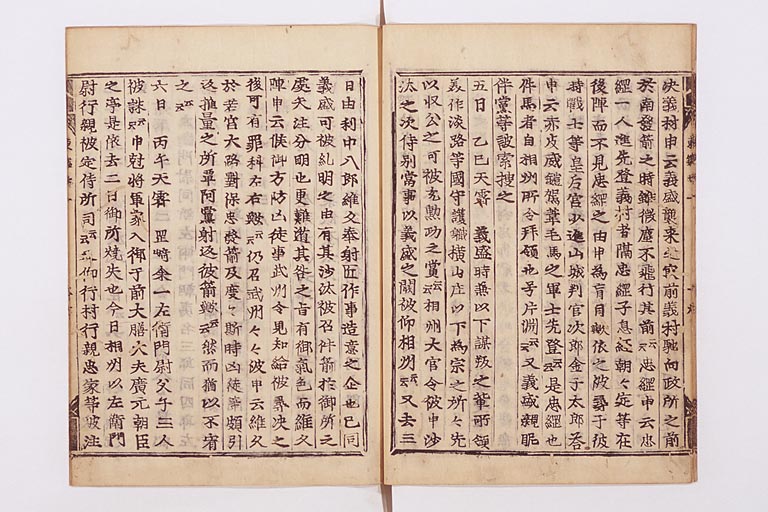 决義村申云義盛襲来之寅前義村馳向政所之前
於南發箭之時雖微塵不飛行其前云云忠綱申云忠
綱一人進先登義村者隔忠綱子息經朝々定等在
後陣而不見忠綱之由申為盲目歟依之被尋于彼
時戰士等皇后宮少進山城判官次郎金子太郎答
申云赤皮威鎧駕葦毛馬之軍士先登云云是忠綱也
件馬者自相州所令拜領也号片淵云云又義盛親昵
伴黨等被索搜之
五日　乙巳天霽　義盛時兼以下謀叛之輩所領
美作淡路等國守護横山庄以下為宗之所々先
以収公之可被充勲功之賞云云相州大官令被申沙
汰之次侍別當事以義盛之闕被仰相州云云又去三
日由利中八郎維久奉射匠作事造意之企也已同
義盛可被糺明之由有其沙汰被召件箭於御所之
處矢注分明也更難遁其咎之旨有御氣色而維久
陣申云候御方防凶徒事武州令見知給被尋决之
後可有罪科左右歟云云仍召武州々々被申云維久
於若宮大路對保忠發箭及度々斯時凶徒等頗引
返推量之所覃阿黨射返彼箭歟云云然而猶以不宥
之云云
六日　丙午天霽　酉尅余一左衛門尉父子三人
被誅云云申尅將軍家入御于前大膳大夫廣元朝臣
之亭是依去二日御所燒失也今日相州以左衛門
尉行親被定侍所司云云又仰行村行親忠家等被注